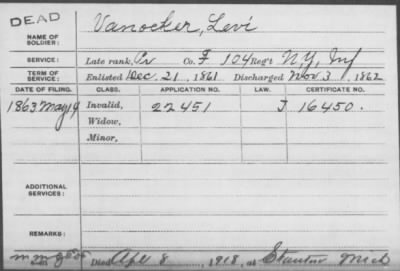 DEAD
Vanocker, Levi
NAME OF SOLDIER:
SERVICE: Late rank, Pr Co. F 104 Reg't N.Y. Inf
TERM OF SERVICE: Enlisted Dec 21, 1861 Discharged Nov 3, 1862
DATE OF FILING. CLASS. APPLICATION NO. LAW. CERTIFICATE NO.
1863 May 14 Invalid, 22451 J 16450.
Widow,
Minor,
ADDITIONAL SERVICES:
REMARKS:
Died Apl 8, 1918, at Stanton Mich